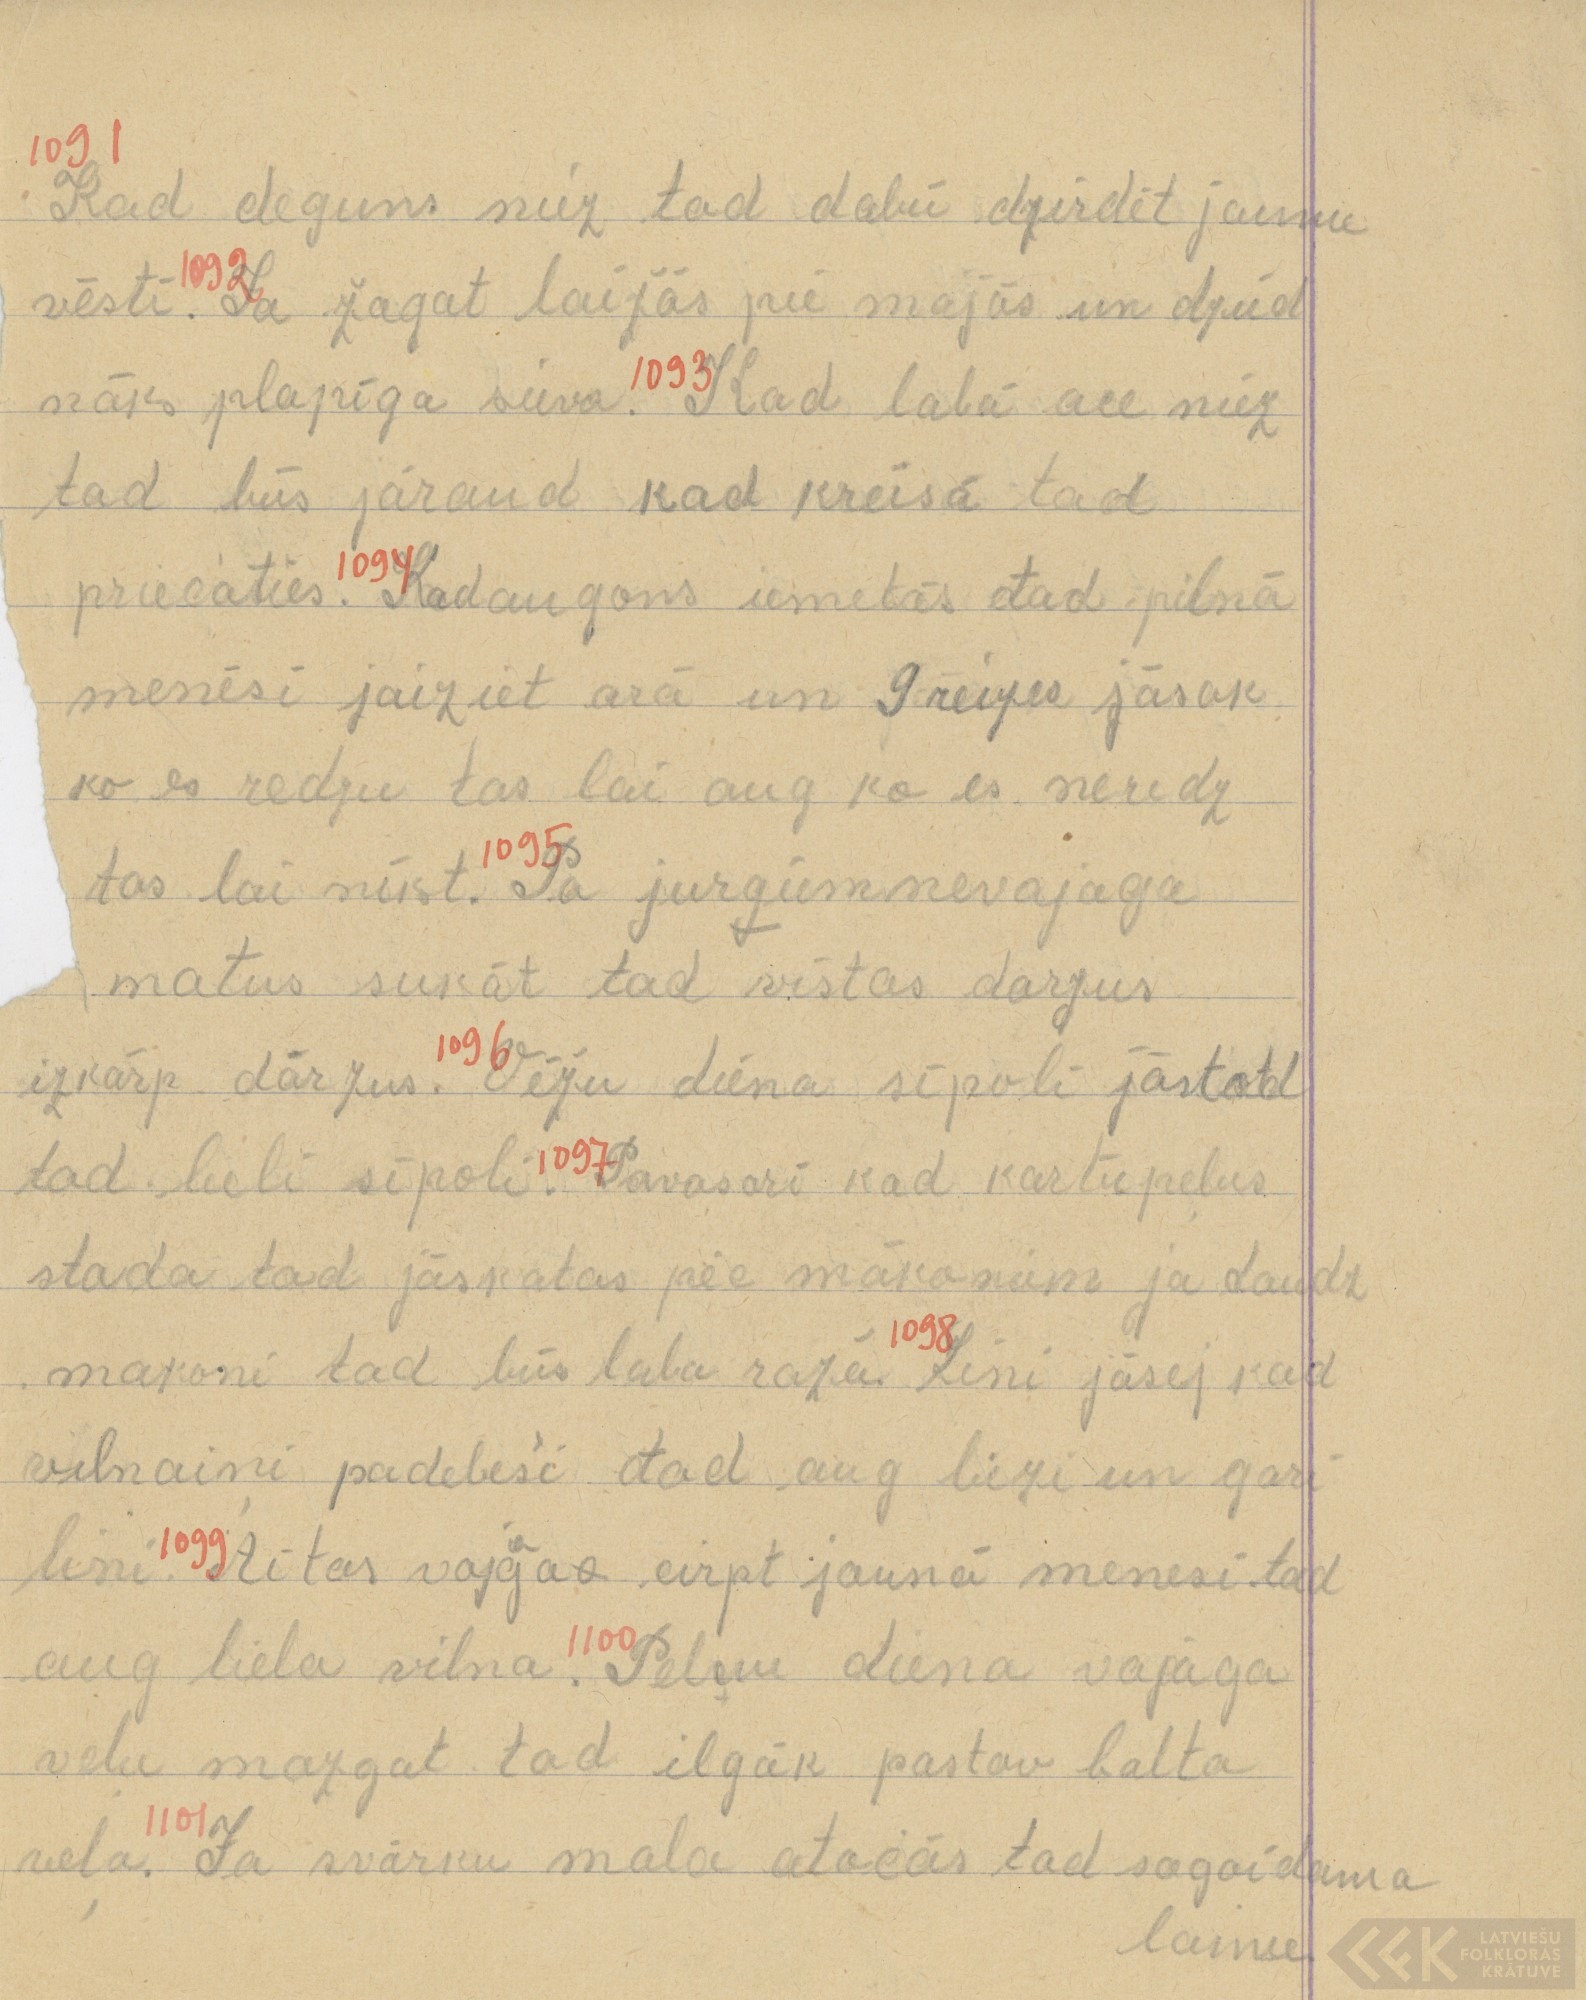 1091
Kad deguns niez tad dabū dzirdēt jaunu
vēsti. 1092 Ja žagat laižās pie majās un dzied
nāks plapīga sieva. 1093 Kad labā ace niez
tad būs jāraud kad kreisā tad
priecāties. 1094 Kad augons iemetās tad pilnā
menēsi jaiziet arā un 9 reizes jāsak
ko es redzu tas lai aug ko es neredz
tas lai nīkst. 1095 Pa jurģiem nevajaga
matus sukāt tad vistas darzus
izkārp dārzus. 1096 Vēžu diena sīpoli jāstad
tad lieli sīpoli. 1097 Pavasari kad kartupeļus
stada tad jāskatas pēc mākoniem ja daudz
makoni tad būs laba raža. 1098 Lini jāsej kad
vilnaiņi padebeši tad aug biezi un gari
lini. 1099 Aitas vajaga cirpt jaunā menesi tad
aug liela vilna. 1100 Pelņu diena vajaga
velu mazgat tad ilgāk pastav balta
veļa. 1101 Ja svārku mala atocās tad sagaidama
laime.
LATVIEŠU
FOLKLORAS
KRĀTUVE